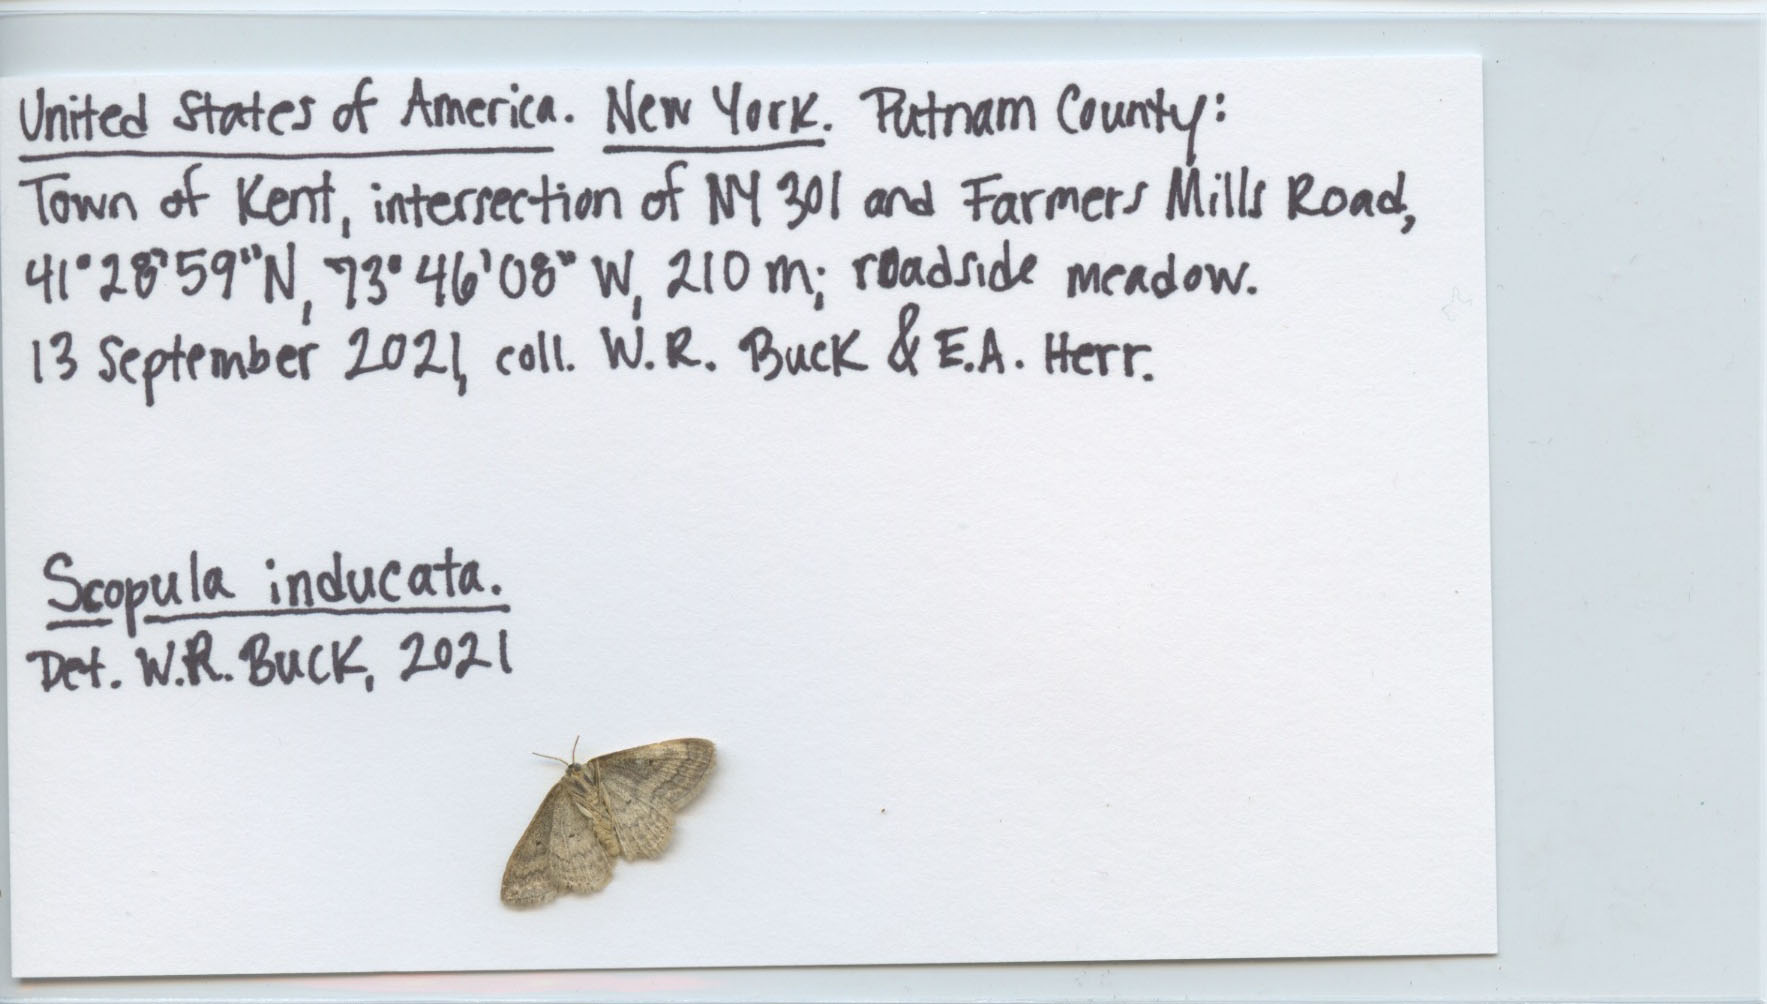 United States of America. New York. Putnam County:
Town of Kent, intersection of NY 301 and Farmers Mills Road,
41°28'59"N, 73°46'08" W, 210 m; roadside meadow.
13 September 2021, coll. W.R. Buck & E.A. Herr.
Scopula inducata.
Det. W.R. Buck, 2021